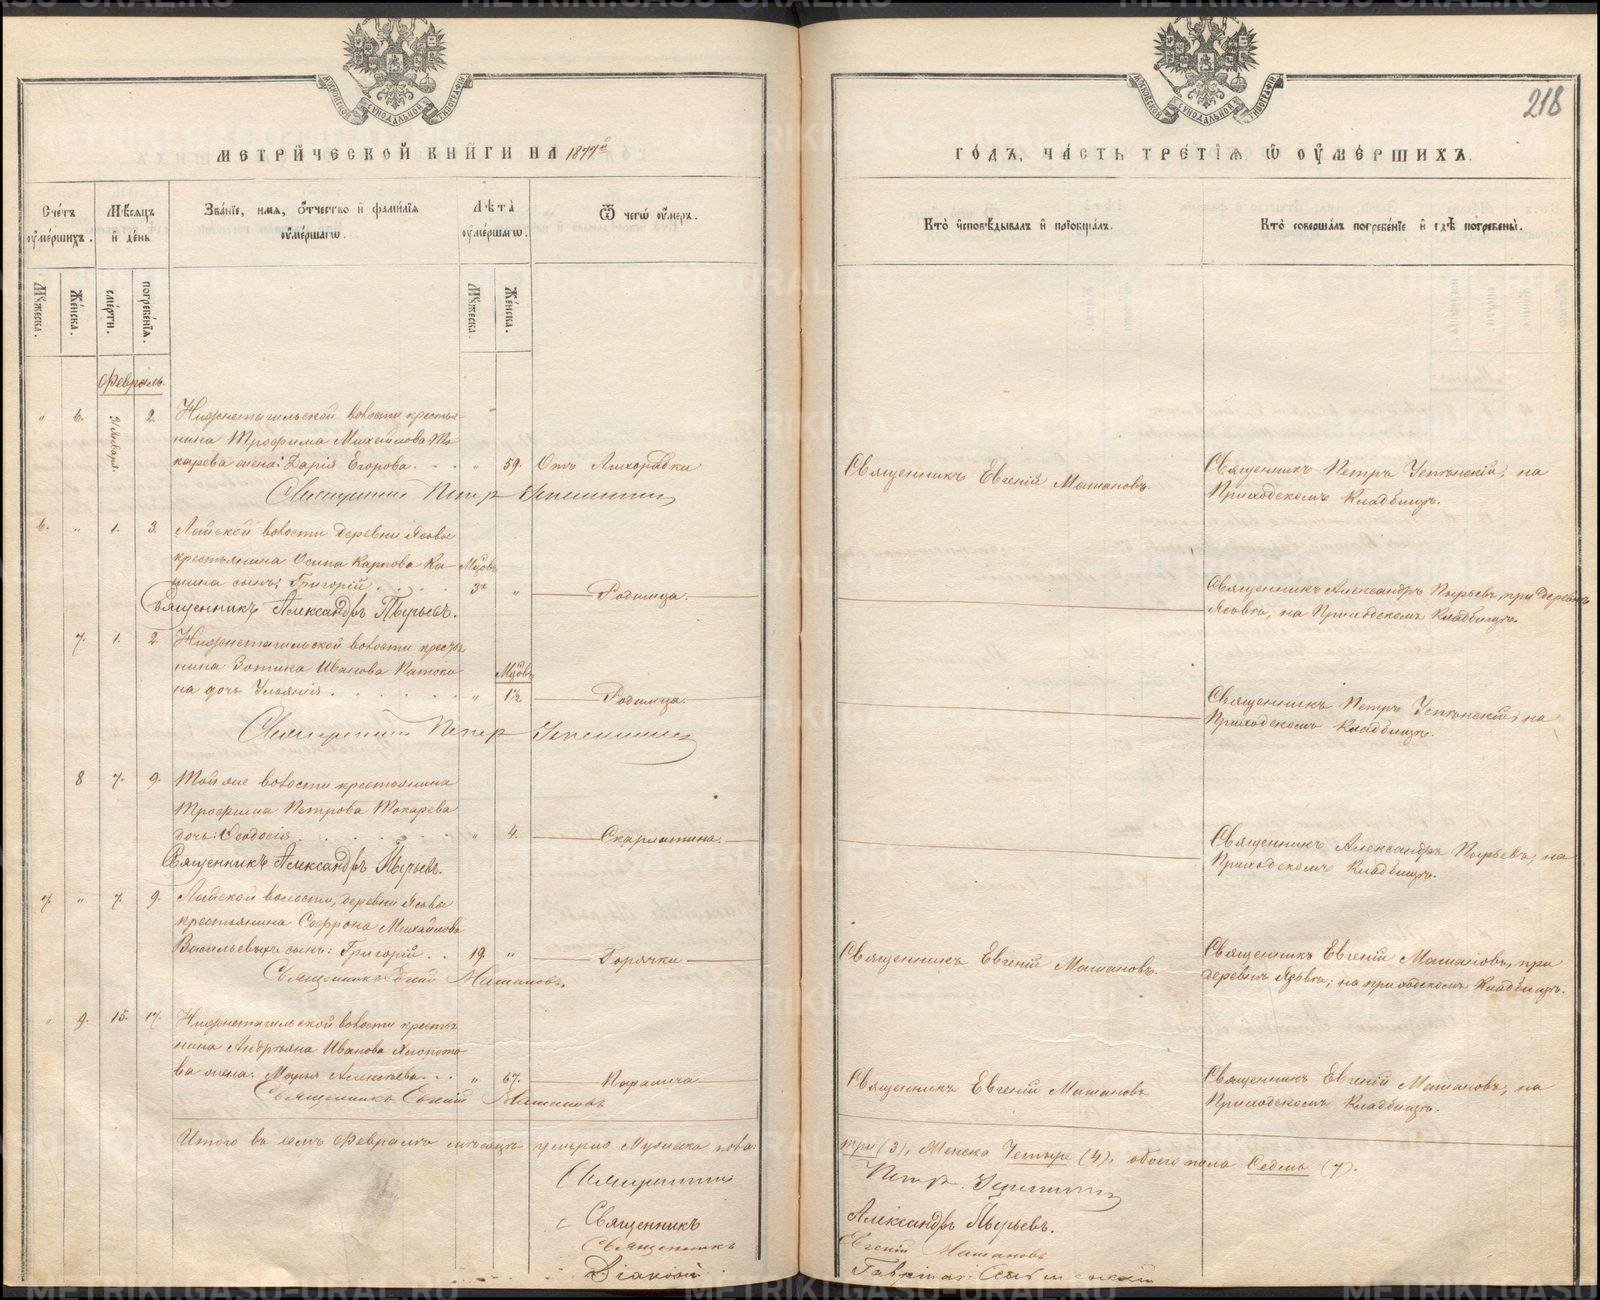 МЕТРИЧЕСКОЙ КНИГИ НА 1877й
Счетъ оумершихъ.
Мѣсяцъ и день
Званіе, имя, отчество и фамилія оумершагѡ.
Лѣта оумершагѡ.
Ѿ чегѡ оумеръ.
Мꙋжеска.
Женска.
смерти.
погребенія.
Мꙋжеска
Женска.
Февраль.
" 6. 31 Января. 2. Нижнетагильской волости крестья-
нина Трофима Михайлова То-
карева жена: Дарія Егорова. . . " 59. Отъ Лихорадки
Священникъ Петръ
6. " 1. 3. Лайской волости деревни Ясовы
крестьянина Осипа Карпова Ка- Мцовъ
шина сынъ: Григорій . . . 3х " Родимца.
Священникъ Александръ Пырьевъ.
7. 1. 2. Нижнетагильской волости крестья
нина Зотика Иванова Патоки- Мцовъ
на дочь Ульянія . . . . . " 1½ Родимца.
Священникъ Петръ
8 7. 9. Той же волости крестьянина
Трофима Петрова Токарева
дочь: Ѳеодосія . . . . " 4. Скарлатина.
Священникъ Александръ Пырьевъ.
7 " 7. 9. Лайской волости, деревни Ясовы
крестьянина Софрона Михайлова
Васильевыхъ сынъ: Григорій . . 19 " Горячки
Священникъ Евгній Машановъ.
" 9. 15. 17. Нижнетагильской волости крестья
нина Андрѣяна Иванова
ва жена: Марья Алексѣева . . . " 67. Паралича
Священникъ Евгній Машановъ
Итого въ семъ Февралѣ мѣсяцѣ умерло Мужеска пола:
Священникъ
Священникъ
Священникъ
Діаконъ
218
ГОДЪ, ЧАСТЬ ТРЕТІЯ, Ѡ ОУМЕРШИХЪ.
Кто исповѣдывалъ и пріобщалъ.
Кто совершалъ погребеніе и гдѣ погребены.
Священникъ Евгеній Машановъ.
Священникъ Петръ Успенскій; на
Приходскомъ Кладбищѣ.
Священникъ Александръ Пырьевъ, при деревнѣ
Ясовкѣ, на Приходскомъ Кладбищѣ.
Священникъ Петръ Успенскій; на
Приходскомъ Кладбищѣ.
Священникъ Александръ Пырьевъ, на
Приходскомъ Кладбищѣ.
Священникъ Евгеній Машановъ.
Священникъ Евгеній Машановъ, при
деревнѣ Ясовкѣ; на приходскомъ Кладбищѣ.
Священникъ Евгеній Машановъ
Священникъ Евгеній Машановъ, на
Приходскомъ Кладбищѣ.
три (3), Женска Четыре (4), обоего пола Седмь (7).
Петръ
Александръ Пырьевъ.
Евгеній Машановъ
Гавріилъ
METRIKI.GASO-URAL.RU